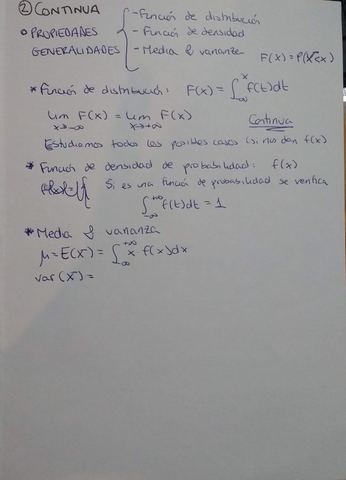 ② CONTINUA
○ PROPIEDADES
GENERALIDADES
- Función de distribución
- Función de densidad
- Media & varianza
F(x) = P(X<x)
* Función de distribución: F(x) = ∫_{-∞}^{x} f(t)dt
lim_{x→-∞} F(x) = lim_{x→+∞} F(x)
Continua
Estudiamos todos los posibles casos (si nos dan f(x)
* Función de densidad de probabilidad: f(x)
Si es una función de probabilidad se verifica
∫_{-∞}^{+∞} f(t)dt = 1
* Media & varianza
μ = E(X) = ∫_{-∞}^{+∞} x f(x)dx
var(X) =